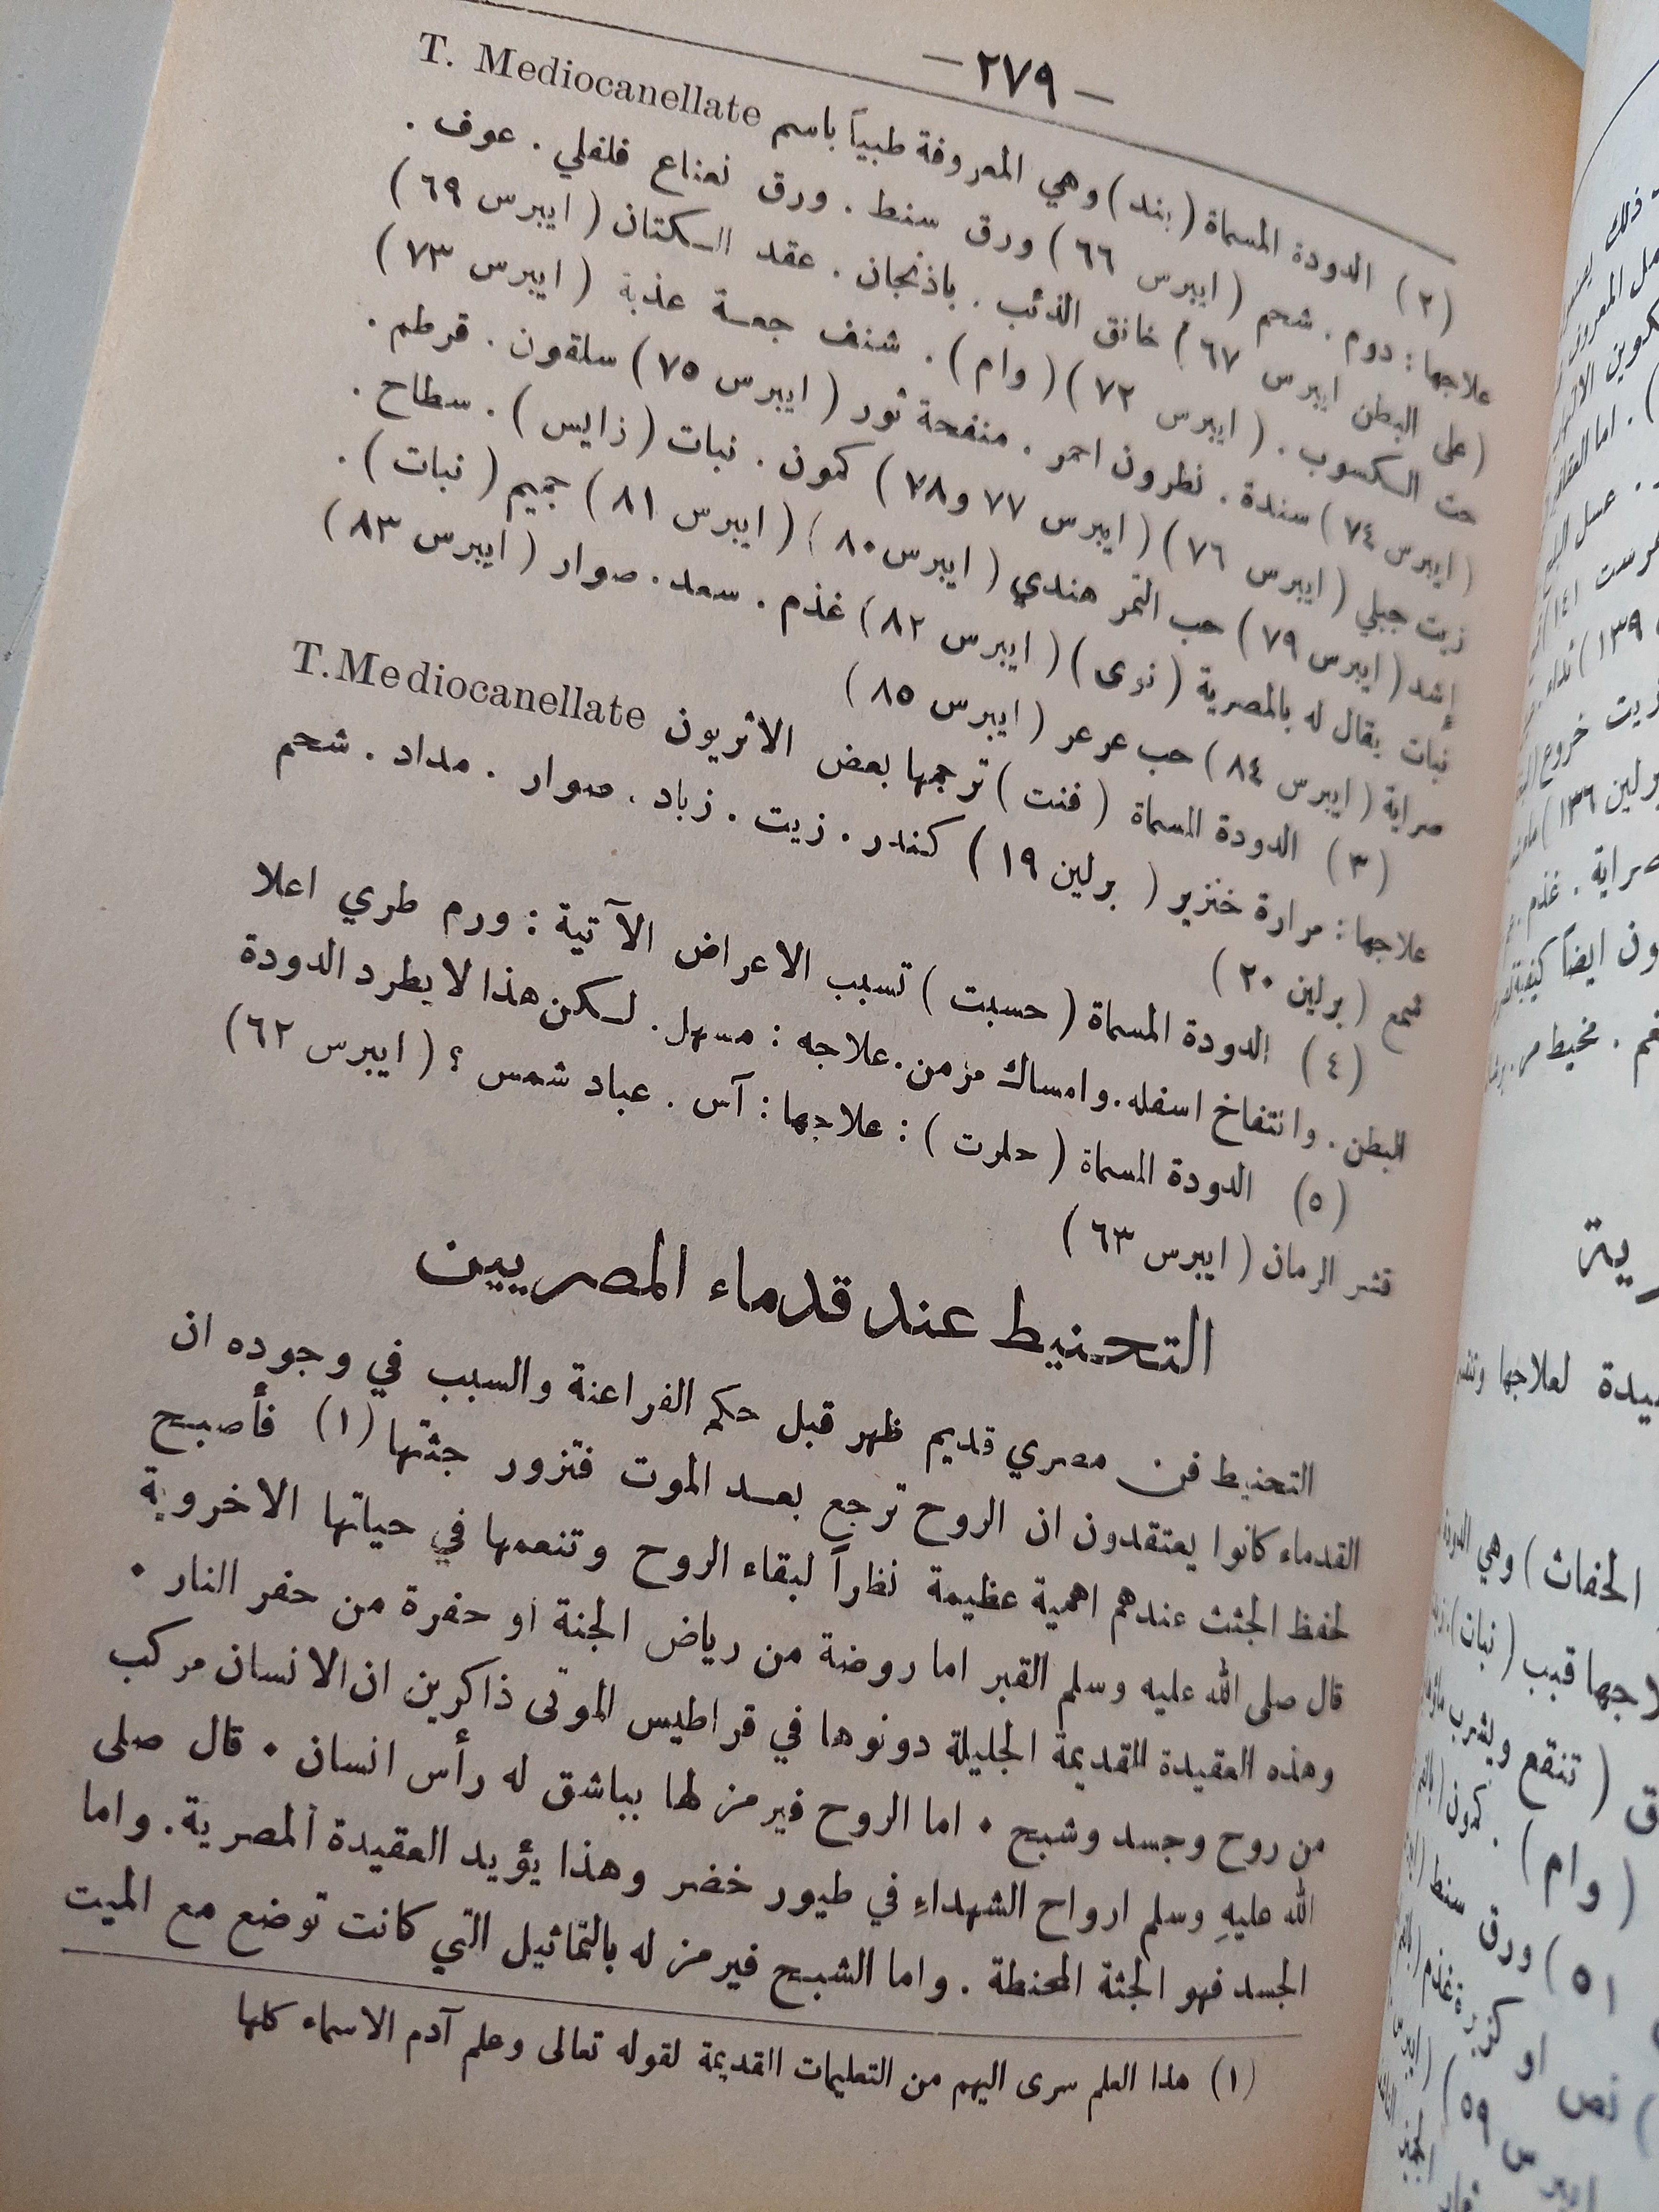 — ٢٧٩ —
(٢) الدودة المسماة (بند) وهي المعروفة طبياً باسم T. Mediocanellate
علاجها: دوم . شحم (ايبرس ٦٦) ورق سنط . ورق نعناع فلفلي . عوف .
(على البطن ايبرس ٦٧) خانق الذئب . باذنجان . عقد الكتان (ايبرس ٦٩)
حت الكسوب . (ايبرس ٧٢) (وام) . شنف جعة عذبة (ايبرس ٧٣)
(ايبرس ٧٤) سندة . نطرون احمر . منفحة ثور (ايبرس ٧٥) سلقون . قرطم .
زيت جبلي (ايبرس ٧٦) (ايبرس ٧٧ و٧٨) كمون . نبات (زايس) . سطاح .
إشد (ايبرس ٧٩) حب التمر هندي (ايبرس ٨٠) (ايبرس ٨١) جميم (نبات) .
نبات يقال له بالمصرية (نوى) (ايبرس ٨٢) غذم . سعد . صوار (ايبرس ٨٣)
صراية (ايبرس ٨٤) حب عرعر (ايبرس ٨٥)
(٣) الدودة المسماة (فنت) ترجمها بعض الاثريون T.Mediocanellate
علاجها: مرارة خنزير (برلين ١٩) كندر . زيت . زباد . صوار . مداد . شحم
شمع (برلين ٢٠)
(٤) الدودة المسماة (حسبت) تسبب الاعراض الآتية : ورم طري اعلا
البطن . وانتفاخ اسفله . وامساك مزمن . علاجه : مسهل . لكن هذا لا يطرد الدودة
(٥) الدودة المسماة (حلرت) : علاجها : آس . عباد شمس ؟ (ايبرس ٦٢)
قشر الرمان (ايبرس ٦٣)
التحنيط عند قدماء المصريين
التحنيط فن مصري قديم ظهر قبل حكم الفراعنة والسبب في وجوده ان
القدماء كانوا يعتقدون ان الروح ترجع بعد الموت فتزور جثتها (١) فأصبح
لحفظ الجثث عندهم اهمية عظيمة نظراً لبقاء الروح وتنعمها في حياتها الاخروية
قال صلى الله عليه وسلم القبر اما روضة من رياض الجنة او حفرة من حفر النار .
وهذه العقيدة القديمة الجليلة دونوها في قراطيس الموتى ذاكرين ان الانسان مركب
من روح وجسد وشبح . اما الروح فيرمز لها بباشق له رأس انسان . قال صلى
الله عليهِ وسلم ارواح الشهداءِ في طيور خضر وهذا يؤيد العقيدة المصرية . واما
الجسد فهو الجثة المحنطة . واما الشبح فيرمز له بالتماثيل التي كانت توضع مع الميت
(١) هذا العلم سرى اليهم من التعليمات القديمة لقوله تعالى وعلم آدم الاسماء كلها